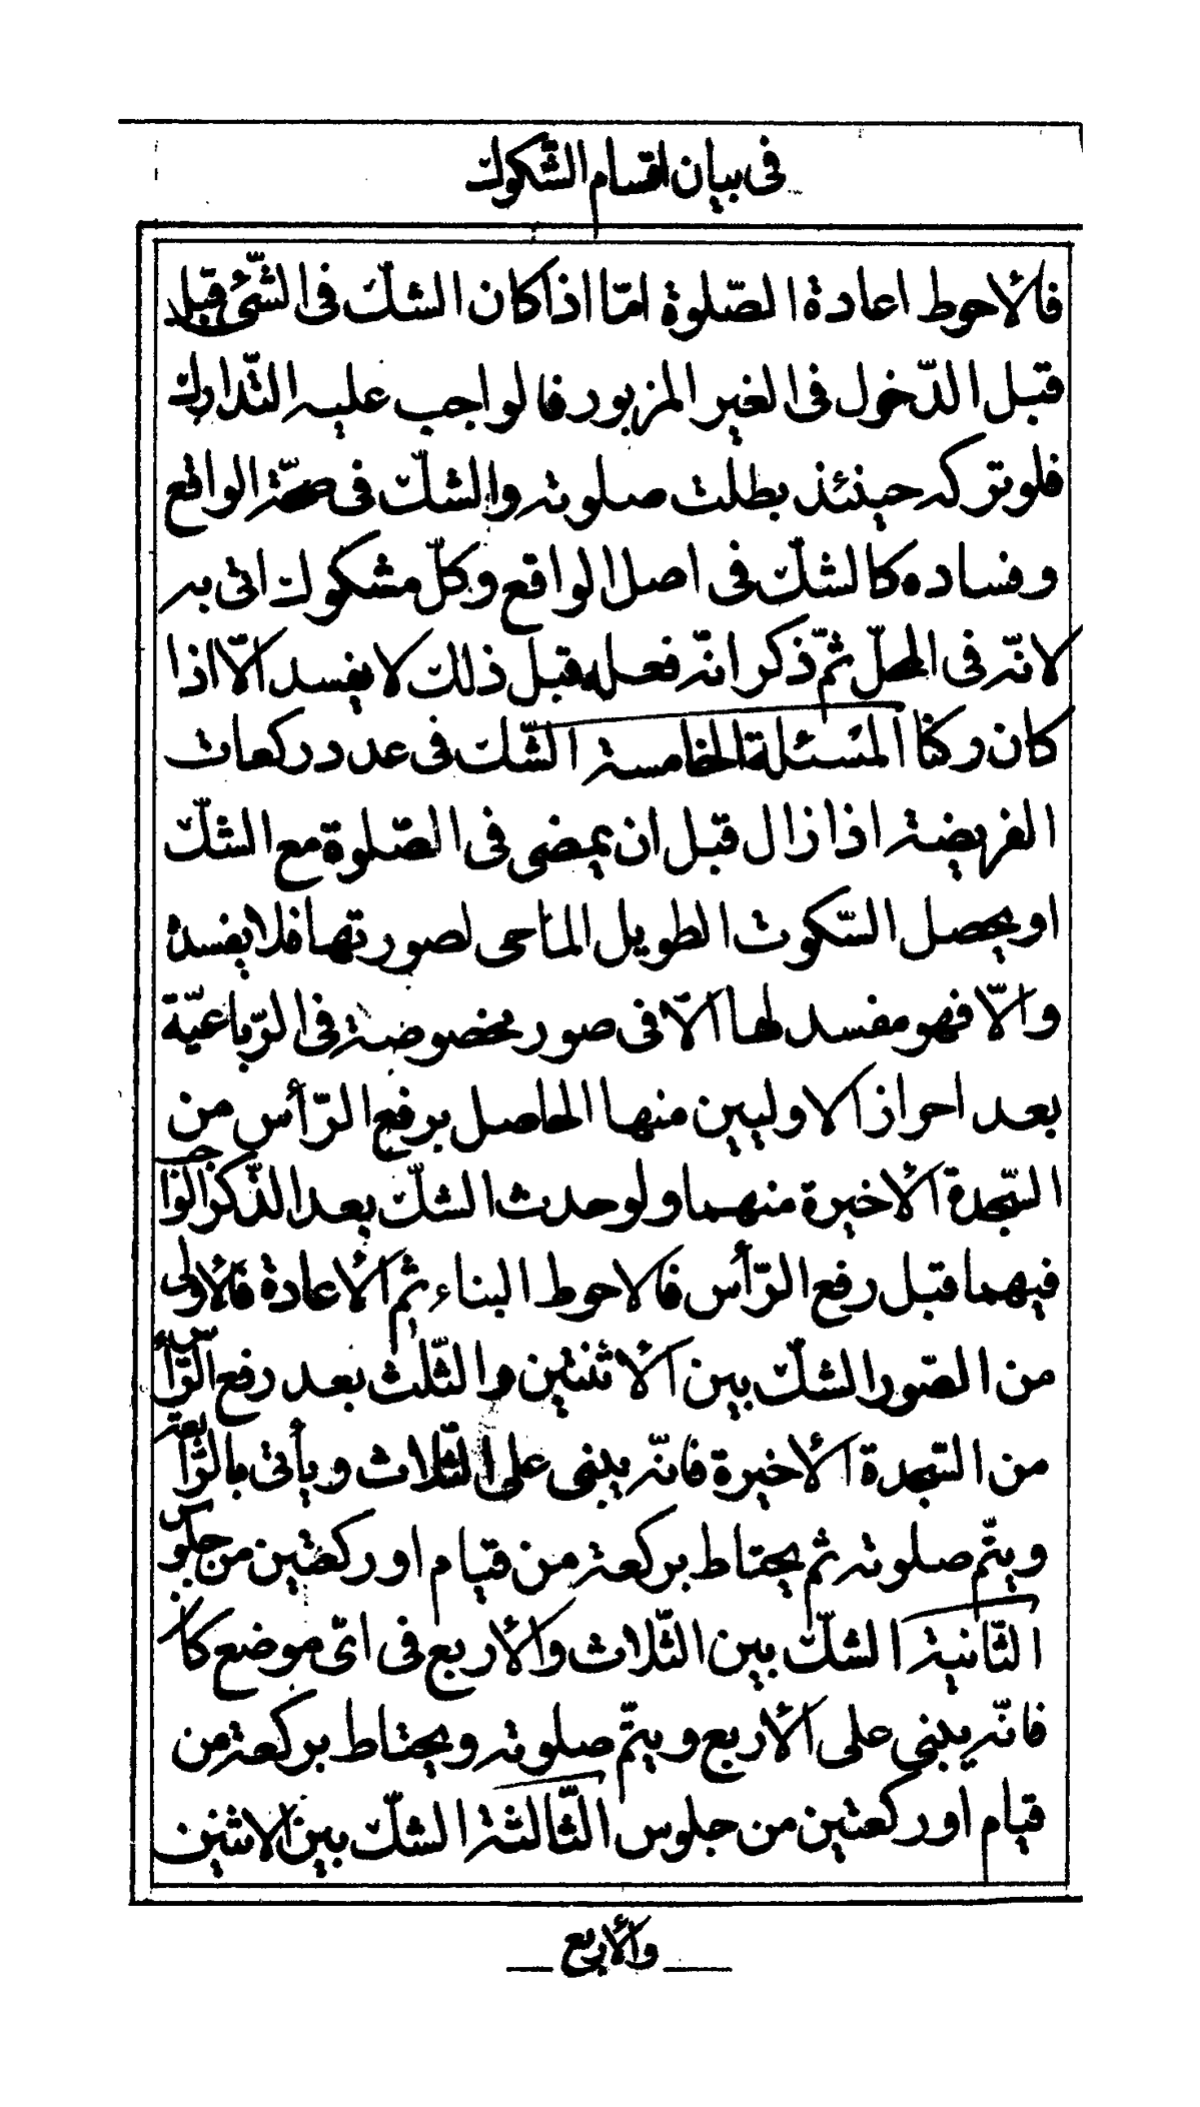 فى بيان اقسام الشّكوك
فالأحوط اعادة الصّلوة امّا اذا كان الشكّ فى الشّىء قبل
قبل الدّخول فى الغير المزبور فالواجب عليه التّدارك
فلو تركه حينئذ بطلت صلوته والشكّ فى صحّة الواقع
و فساده كالشكّ فى اصل الواقع و كلّ مشكوك اتى به
لانّه فى المحلّ ثمّ ذكر انّه فعله قبل ذلك لا يفسد الّا اذا
كان ركنًا المسئلة الخامسة الشّك فى عدد ركعات
الفريضة اذا زال قبل ان يمضى فى الصّلوة مع الشكّ
او يحصل السّكوت الطويل الماحى لصورتها فلا يفسد
والّا فهو مفسد لها الّا فى صور مخصوصة فى الرّباعيّة
بعد احراز الاوليين منها الحاصل برفع الرّأس من
السّجدة الأخيرة منهما ولو حدث الشكّ بعد الذّكر الواجب
فيهما قبل رفع الرّأس فالاحوط البناء ثمّ الأعادة فالأولى
من الصّور الشكّ بين الأثنتين والثّلث بعد رفع الرّأس
من السّجدة الأخيرة فانّه يبنى على الثّلاث و يأتى بالرّابعة
و يتمّ صلوته ثم يحتاط بركعة من قيام او ركعتين من جلوس
الثّانية الشكّ بين الثّلاث والأربع فى اىّ موضع كان
فانّه يبنى على الأربع و يتمّ صلوته و يحتاط بركعة من
قيام او ركعتين من جلوس الثّالثة الشكّ بين الاثنين
والأربع